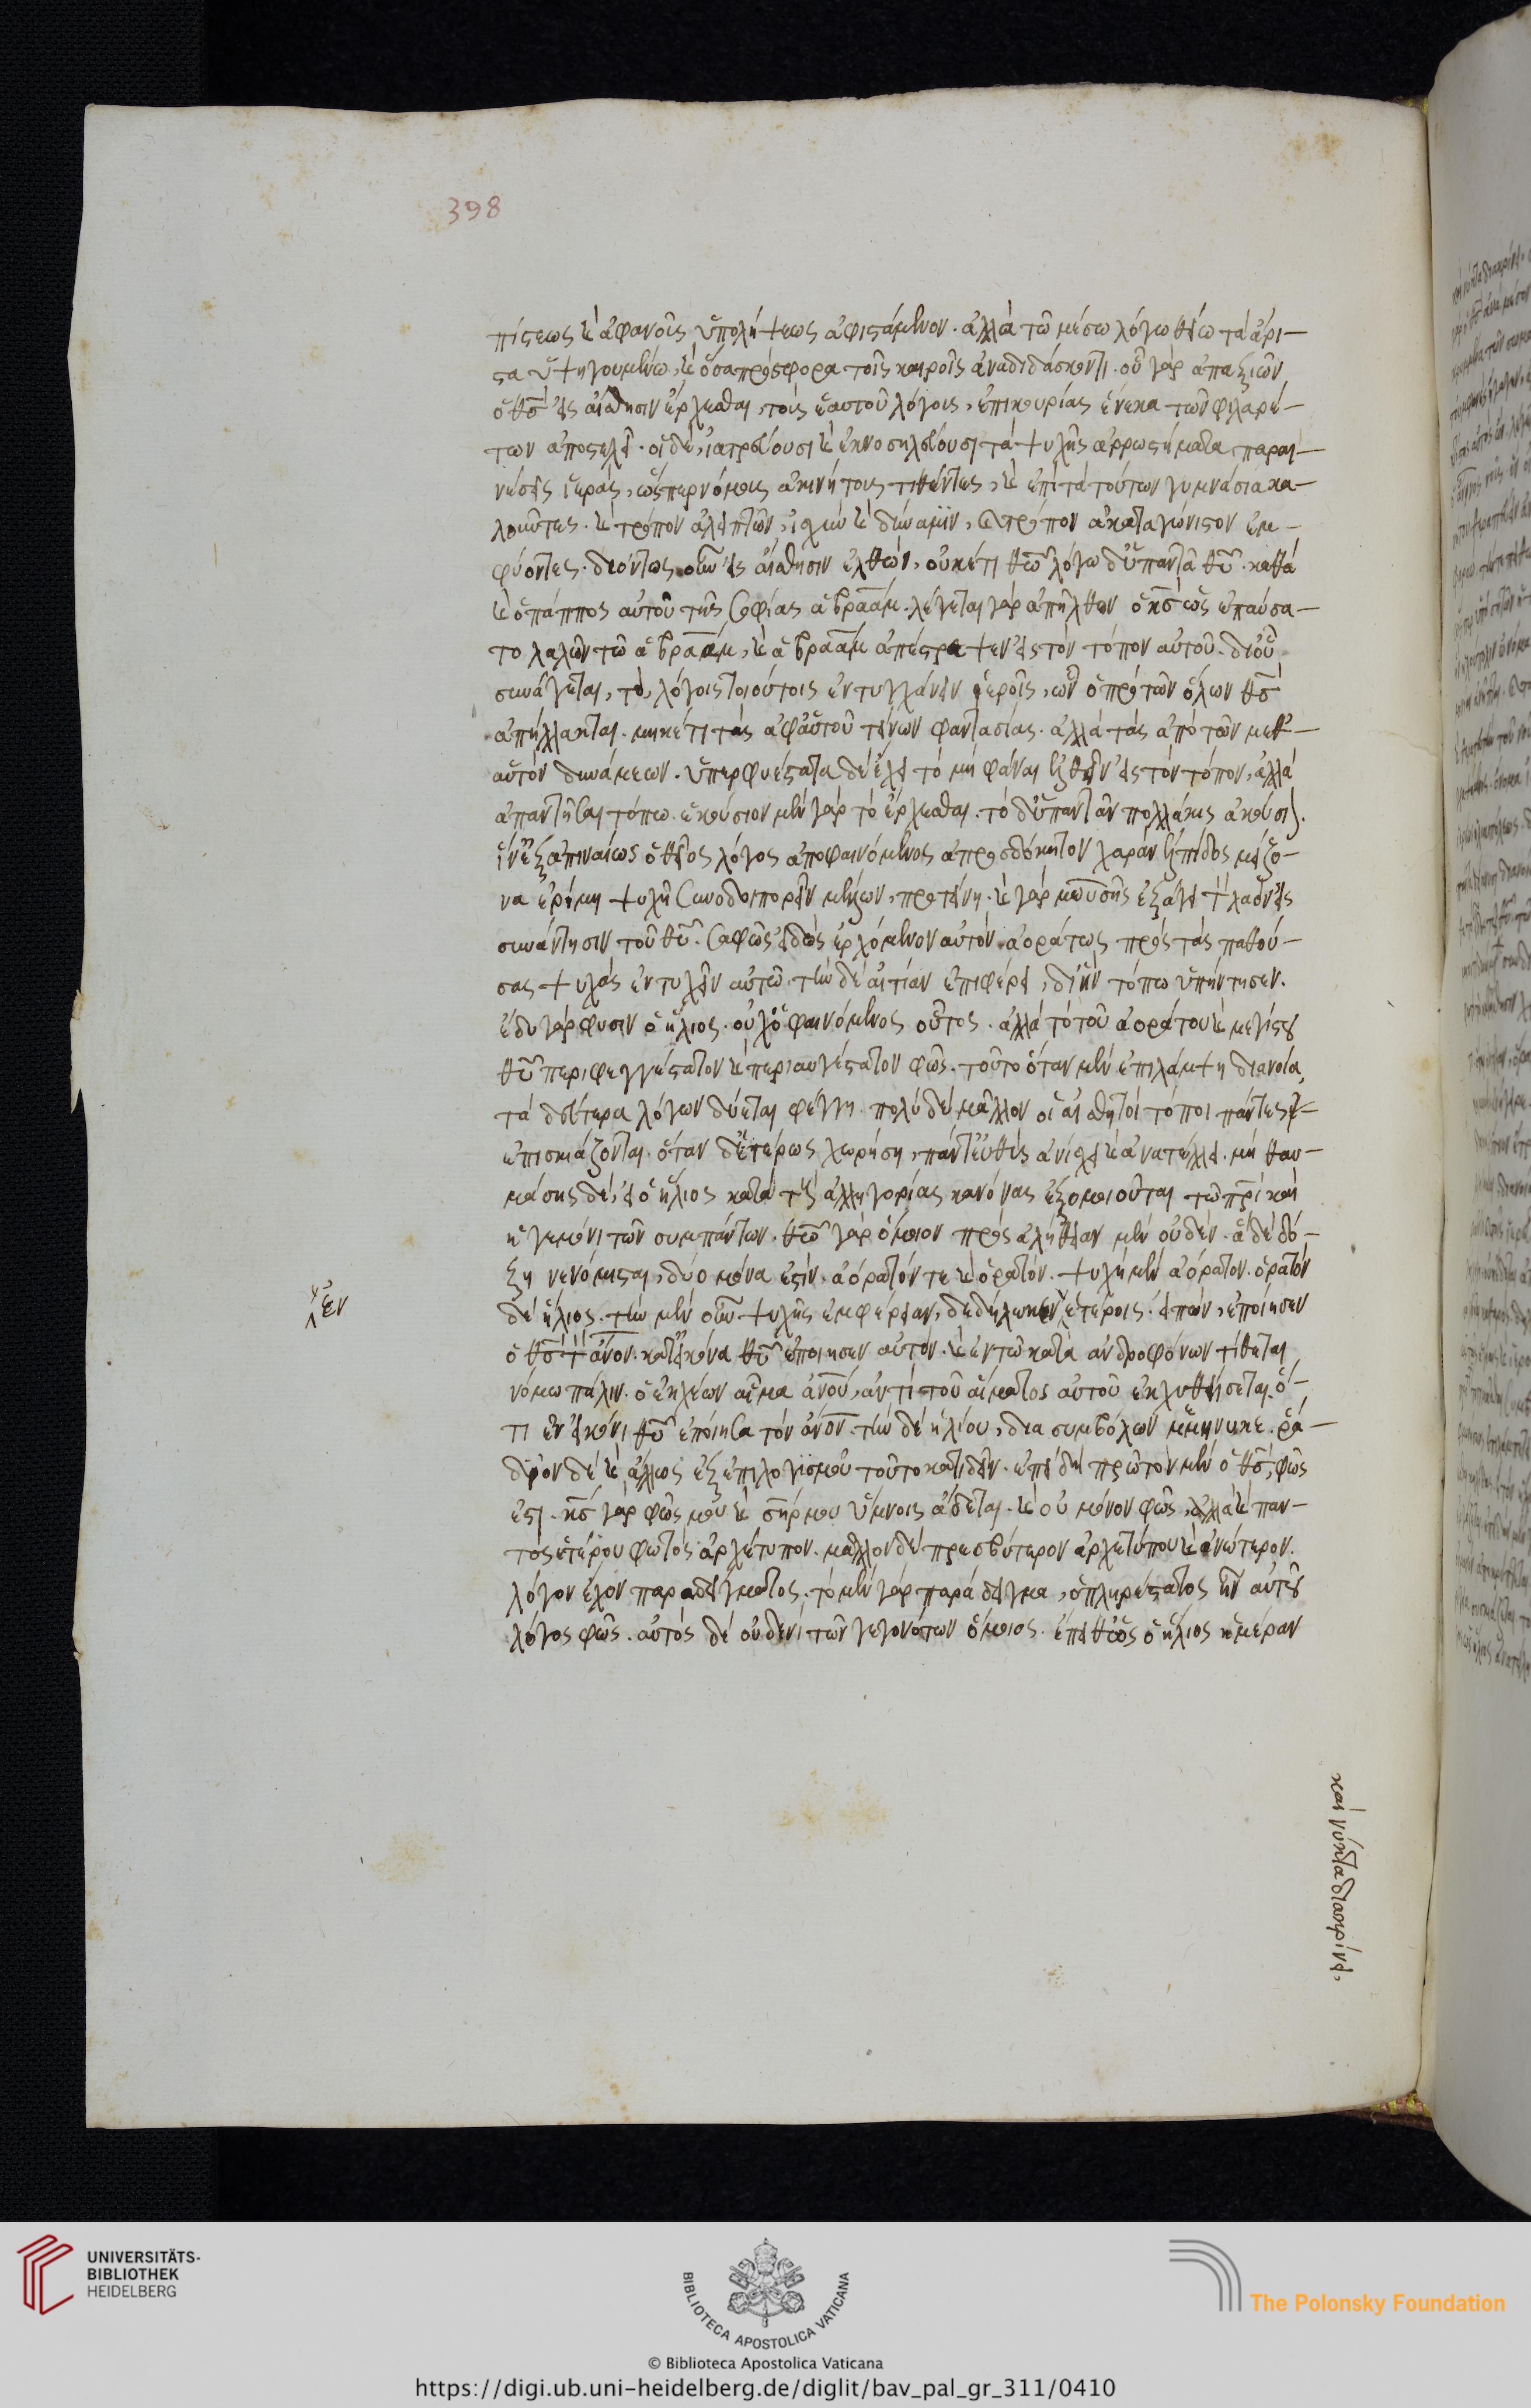 398
πίστεως καὶ ἀφανοῦς ὑπολήψεως ἀφιστάμενον. ἀλλὰ τῶ μέσω λόγω θείω τὰ ἄρι-
στα ὑφηγουμένω, καὶ ὅσα πρόσφορα τοῖς καιροῖς ἀναδιδάσκοντι. οὐ γὰρ ἀπαξιῶν
ὁ θσ εἰς αἴσθησιν ἔρχεσθαι, τοὺς ἑαυτοῦ λόγους, ἐπικουρίας ἕνεκα τῶν φιλαρέ-
των ἀποστέλλει. οἱ δὲ, ἰατρεύουσι καὶ ἐκνοσηλεύουσι τὰ ψυχῆς ἀρρωστήματα, παραι-
νέσεις ἱερὰς, ὥσπερ νόμους ἀκινήτους τιθέντες, καὶ ἐπὶ τὰ τούτων γυμνάσια κα-
λοῦντες. καὶ τρόπον ἀλειπτῶν, ἰσχὺν καὶ δύναμιν, καὶ τρόπον ἀκαταγώνιστον ἐμ-
φύοντες. δεόντως οὖν εἰς αἴσθησιν ἐλθὼν, οὐκέτι θεῶ λόγω δ' ὑπαντᾶ θυ. καθὰ
καὶ ὁ πάππος αὐτοῦ τῆς σοφίας ἀβραάμ. λέγεται γὰρ ἀπῆλθεν ὁ κσ ὡς ἐπαύσα-
το λαλῶν τῶ ἀβραὰμ, καὶ ἀβραὰμ ἀπέστρεψεν εἰς τὸν τόπον αὐτοῦ. δι' οὗ
συνάγεται, τὸ, λόγοις τοιούτοις ἐντυγχάνειν ἱεροῖς, ὧν ὁ πρὸ τῶν ὅλων θσ
ἀπήλλακται. μηκέτι τὰς ἀφ' αὑτοῦ τείνων φαντασίας. ἀλλὰ τὰς ἀπὸ τῶν μετ'
αὐτὸν δυνάμεων. ὑπερφυέστατα δὲ ἔχει τὸ μὴ φάναι ἐλθεῖν εἰς τὸν τόπον, ἀλλὰ
ἀπαντῆσαι τόπω. ἑκούσιον μὲν γὰρ τὸ ἔρχεσθαι. τὸ δ' ὑπαντᾶν πολλάκις ἀκούσιον.
ἵν' ἐξαπιναίως ὁ θεῖος λόγος ἀποφαινόμενος ἀπροσδόκητον χαρὰν ἐλπίδος μείζο-
να ἐρήμη ψυχῆ συνοδοιπορεῖν μέλλων, προτείνη. καὶ γὰρ μωυσῆς ἐξάγει τὸν λαὸν εἰς
συνάντησιν τοῦ θυ. σαφῶς εἰδὼς ἐρχόμενον αὐτὸν ἀοράτως πρὸς τὰς ποθού-
σας ψυχὰς ἐντυχεῖν αὐτῶ. τὴν δὲ αἰτίαν ἐπιφέρει, δι' ἣν τόπω ὑπήντησεν.
ἔδυ γάρ φησιν ὁ ἥλιος. οὐχ ὁ φαινόμενος οὗτος. ἀλλὰ τὸ τοῦ ἀοράτου καὶ μεγίστου
θυ περιφεγγέστατον καὶ περιαυγέστατον φῶς. τοῦτο ὅταν μὲν ἐπιλάμψη διανοία,
τὰ δεύτερα λόγων δύεται φέγγη. πολὺ δὲ μᾶλλον οἱ αἰσθητοὶ τόποι πάντες
ἐπισκιάζονται. ὅταν δ' ἑτέρως χωρήση, πάντ' εὐθὺς ἀνίσχει καὶ ἀνατέλλει. μὴ θαυ-
μάσης δὲ, εἰ ὁ ἥλιος κατὰ τοὺς ἀλληγορίας κανόνας ἐξομοιοῦται τῶ πρι καὶ
ἡγεμόνι τῶν συμπάντων. θεῶ γὰρ ὅμοιον πρὸς ἀλήθειαν μὲν οὐδέν. ἃ δὲ δό-
ξη νενόμισται, δύο μόνα ἐστὶν. ἀόρατόν τε καὶ ὁρατόν. ψυχὴ μὲν ἀόρατον. ὁρατὸν
δὲ ἥλιος. τὴν μὲν οὖν ψυχῆς ἐμφέρειαν, δεδήλωκεν ἑτέροις. εἰπὼν, ἐποίησεν
ὁ θσ τὸν ἄνον. κατ' εἰκόνα θυ ἐποίησεν αὐτόν. καὶ ἐν τῶ κατὰ ἀνδροφόνων τίθεται
νόμω πάλιν. ὁ ἐκχέων αἷμα ἀνου, ἀντὶ τοῦ αἵματος αὐτοῦ ἐκχυθήσεται. ὅ-
τι ἐν εἰκόνι θυ ἐποίησα τὸν ἄνον. τὴν δὲ ἡλίου, δια συμβόλων μεμήνυκε. ῥά-
διον δὲ καὶ ἄλλως ἐξ ἐπιλογισμοῦ τοῦτο κατιδεῖν. ἐπειδὴ πρῶτον μὲν ὁ θσ, φῶς
ἐστι. κσ γὰρ φῶς μου καὶ σηρ μου ὕμνοις ἄδεται. καὶ οὐ μόνον φῶς, ἀλλὰ καὶ παν-
τὸς ἑτέρου φωτὸς ἀρχέτυπον. μᾶλλον δὲ πρεσβύτερον ἀρχετύπου καὶ ἀνώτερον.
λόγον ἔχον παραδείγματος. τὸ μὲν γὰρ παράδειγμα, ὁ πληρέστατος ἦν αὐτοῦ
λόγος φῶς. αὐτὸς δὲ οὐδενὶ τῶν γεγονότων ὅμοιος. ἔπειθ' ὡς ὁ ἥλιος ἡμέραν
ἐν
καὶ νύκτα διακρίνει,
UNIVERSITÄTS-
BIBLIOTHEK
HEIDELBERG
BIBLIOTECA APOSTOLICA VATICANA
The Polonsky Foundation
© Biblioteca Apostolica Vaticana
https://digi.ub.uni-heidelberg.de/diglit/bav_pal_gr_311/0410